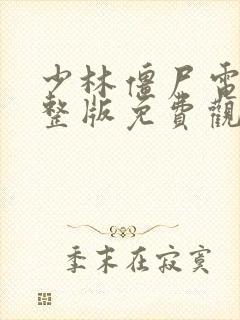 少林僵尸電
整版免費觀
季末在寂寞